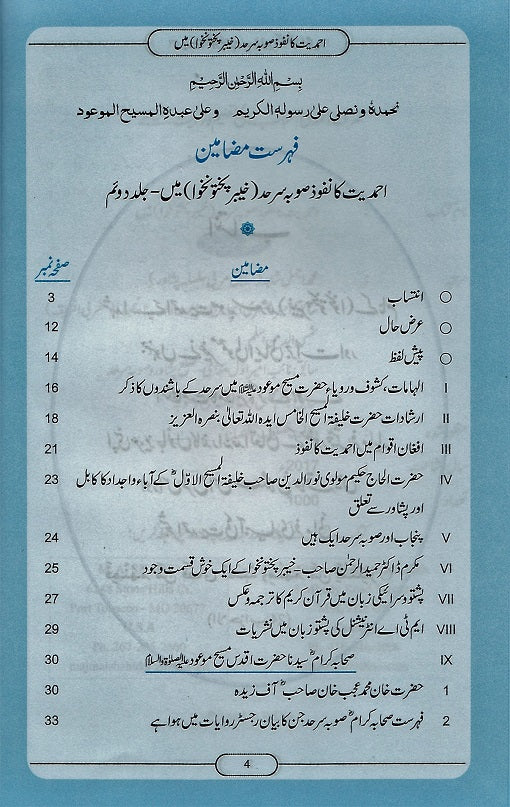 احمدیت کا نفوذ صوبہ سرحد (خیبر پختونخوا) میں
بسم اللہ الرحمٰن الرحیم
نحمدہٗ و نصلی علیٰ رسولہ الکریم وعلیٰ عبدہ المسیح الموعود
فہرست مضامین
احمدیت کا نفوذ صوبہ سرحد (خیبر پختونخوا) میں - جلد دوئم
مضامین صفحہ نمبر
○ انتساب 3
○ عرض حال 12
○ پیش لفظ 14
I الہامات، کشوف و رویاء حضرت مسیح موعود علیہ السلام میں سرحد کے باشندوں کا ذکر 16
II ارشادات حضرت خلیفۃ المسیح الخامس ایدہ اللہ تعالیٰ بنصرہ العزیز 18
III افغان اقوام میں احمدیت کا نفوذ 21
IV حضرت الحاج حکیم مولوی نورالدین صاحب خلیفۃ المسیح الاوّلؓ کے آباء و اجداد کا کابل 23
اور پشاور سے تعلق
V پنجاب اور صوبہ سرحد ایک ہیں 24
VI مکرم ڈاکٹر حمید الرحمٰن صاحب - خیبر پختونخوا کے ایک خوش قسمت وجود 25
VII پشتو و سرائیکی زبان میں قرآن کریم کا ترجمہ و عکس 27
VIII ایم ٹی اے انٹرنیشنل کی پشتو زبان میں نشریات 29
IX صحابہ کرامؓ سیدنا حضرت اقدس مسیح موعود علیہ الصلوٰۃ والسلام 30
1 حضرت خان محمد عجب خان صاحبؓ آف زیدہ 30
2 فہرست صحابہ کرامؓ صوبہ سرحد جن کا بیان رجسٹر روایات میں ہوا ہے 33
4